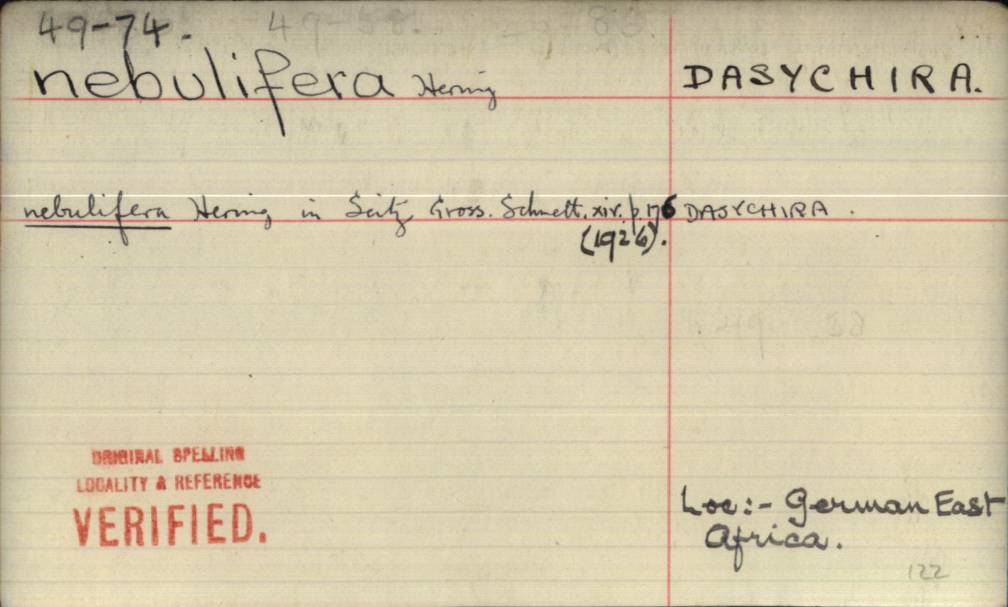 49-74.
nebulifera Hering DASYCHIRA.
nebulifera Hering in Seitz Gross. Schmett. xiv. p. 176 DASYCHIRA.
(1926).
ORIGINAL SPELLING
LOCALITY & REFERENCE
VERIFIED.
Loc:- German East
Africa.
122